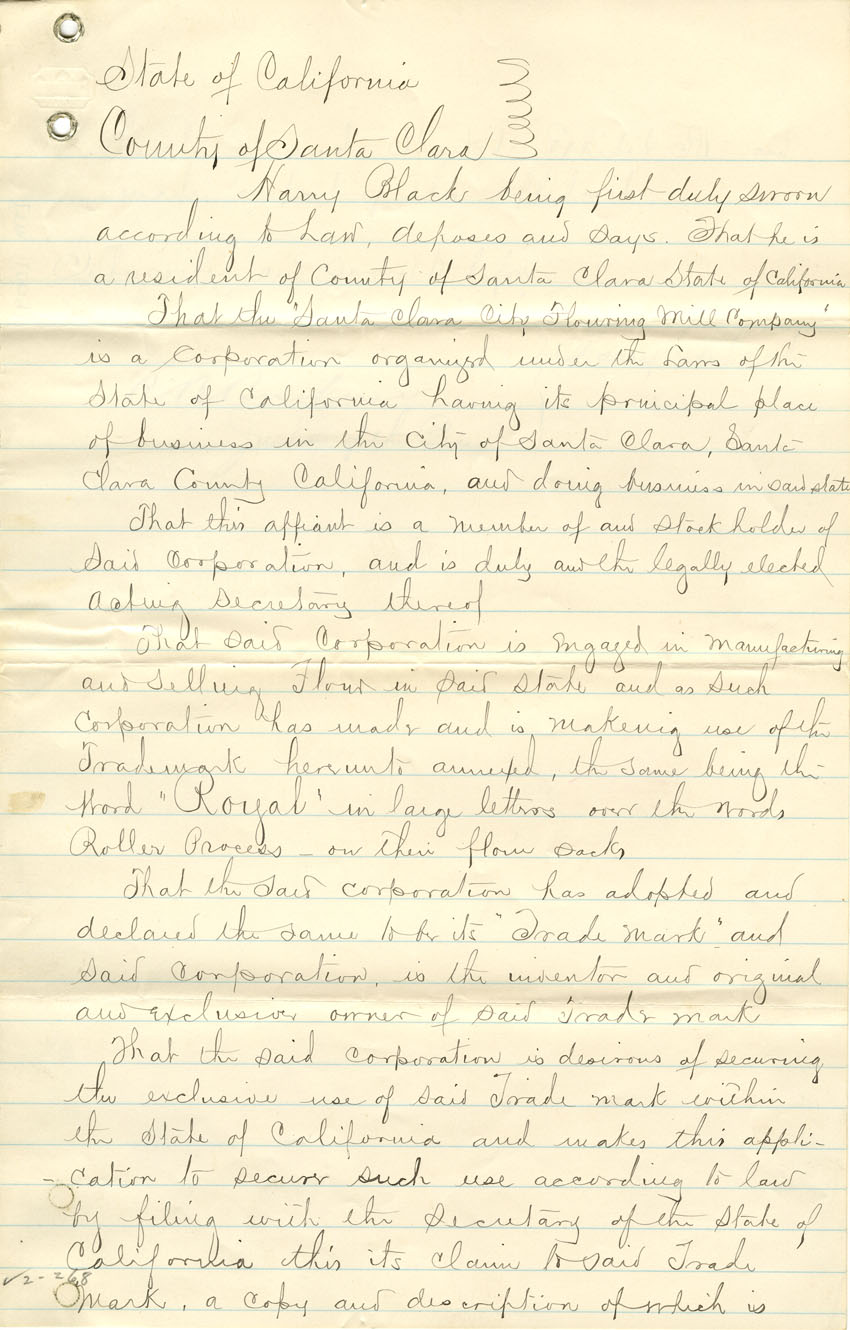 State of California
County of Santa Clara
Harry Black being first duly sworn
according to Law, deposes and says. That he is
a resident of County of Santa Clara State of California
That the "Santa Clara City Flouring Mill Company"
is a Corporation organized under the Laws of the
State of California having its principal place
of business in the City of Santa Clara, Santa
Clara County California, and doing business in said state
That this affiant is a member of and stockholder of
said Corporation, and is duly and the legally elected
acting Secretary thereof
That said Corporation is engaged in manufacturing
and selling Flour in said state and as such
Corporation has made and is makeing use of the
Trademark hereunto annexed, the same being the
Word "Royal" in large letters over the words
Roller Process - on their flour sacks
That the said corporation has adopted and
declared the same to be its "Trade mark" and
said Corporation, is the inventor and original
and exclusive owner of said Trade mark
That the said corporation is desirous of securing
the exclusive use of said Trade mark within
the State of California and makes this appli-
-cation to secure such use according to law
by filing with the Secretary of the State of
California this its claim to said Trade
v2-268
Mark, a copy and description of which is